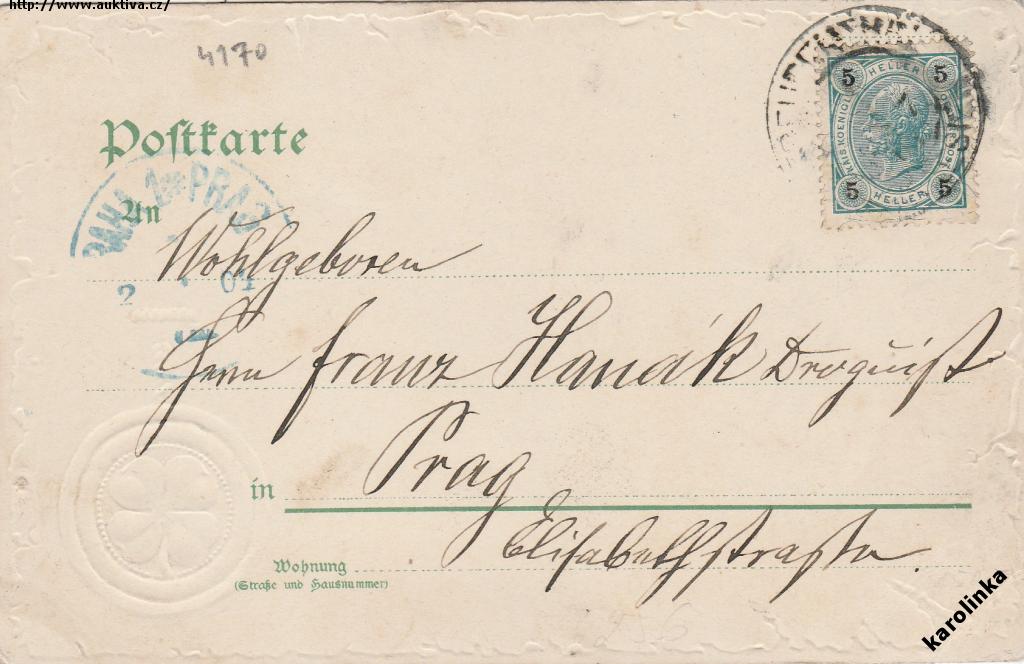 http://www.auktiva.cz/
4170
Postkarte
5 HELLER 5
5 HELLER 5
PRAHA 1 PRAG
An
Wohlgeboren
2 04
Herrn Franz Hanák Droguist
in Prag
Elisabethstrasse.
Wohnung
(Straße und Hausnummer)
karolinka